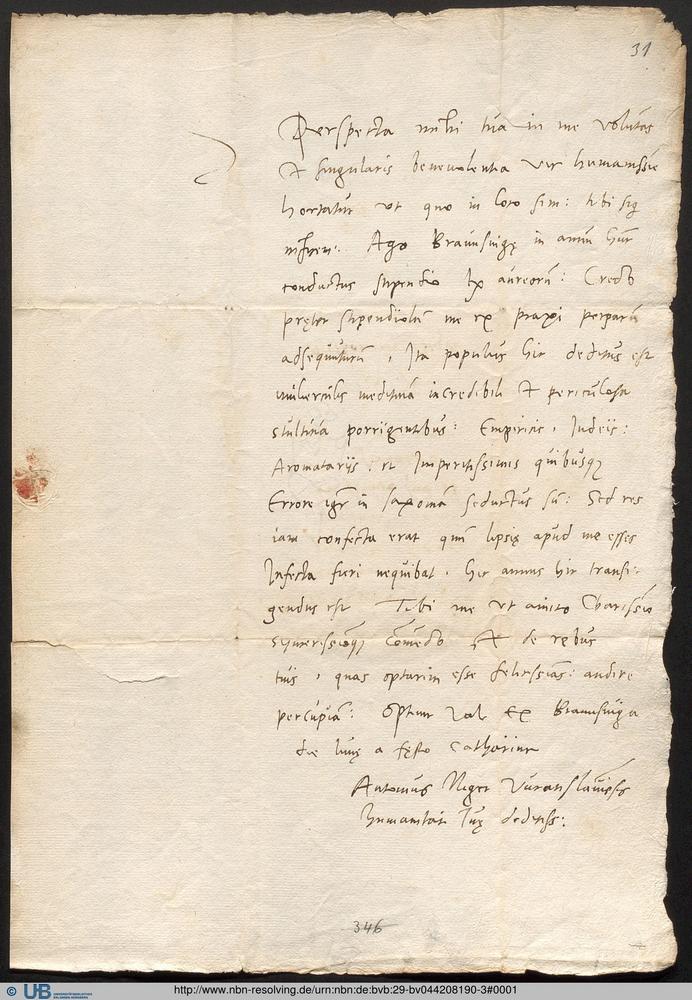 31
Perspecta mihi tua in me volūtas
et singularis benevolentia vir humanissīe
hortatur ut quo in loco sim: tibi sig
nificem. Ago Braunsuigę in annū hūc
conductus stipendio lx aureorū: Credo
pręter stipendiolū me ex praxi perparū
adsequuturū, Ita populus hic deditus est
medicinā incredibili et periculosa
stultitia porrigentibus: Empiricis, Iudeis:
Aromatariis, et Imperitissimis quibusq
Errore igr in saxoniā seductus sū: Sed res
iam confecta erat quū lipsię apud me esses
Infecta fieri nequibat. hic annus hic transi-
gendus est Tibi me ut amico Charissīo
cōmēdo Et de rebus
tuis, quas optarim esse felicissīas: audire
percupiā: Optime vale Ex Braunsuiga
die lunę a fęsto Catharinę
Antonius Niger Vuratislauiēsis
humanitati Tuę deditiss:
346
© UB
UNIVERSITÄTSBIBLIOTHEK
ERLANGEN-NÜRNBERG
http://www.nbn-resolving.de/urn:nbn:de:bvb:29-bv044208190-3#0001